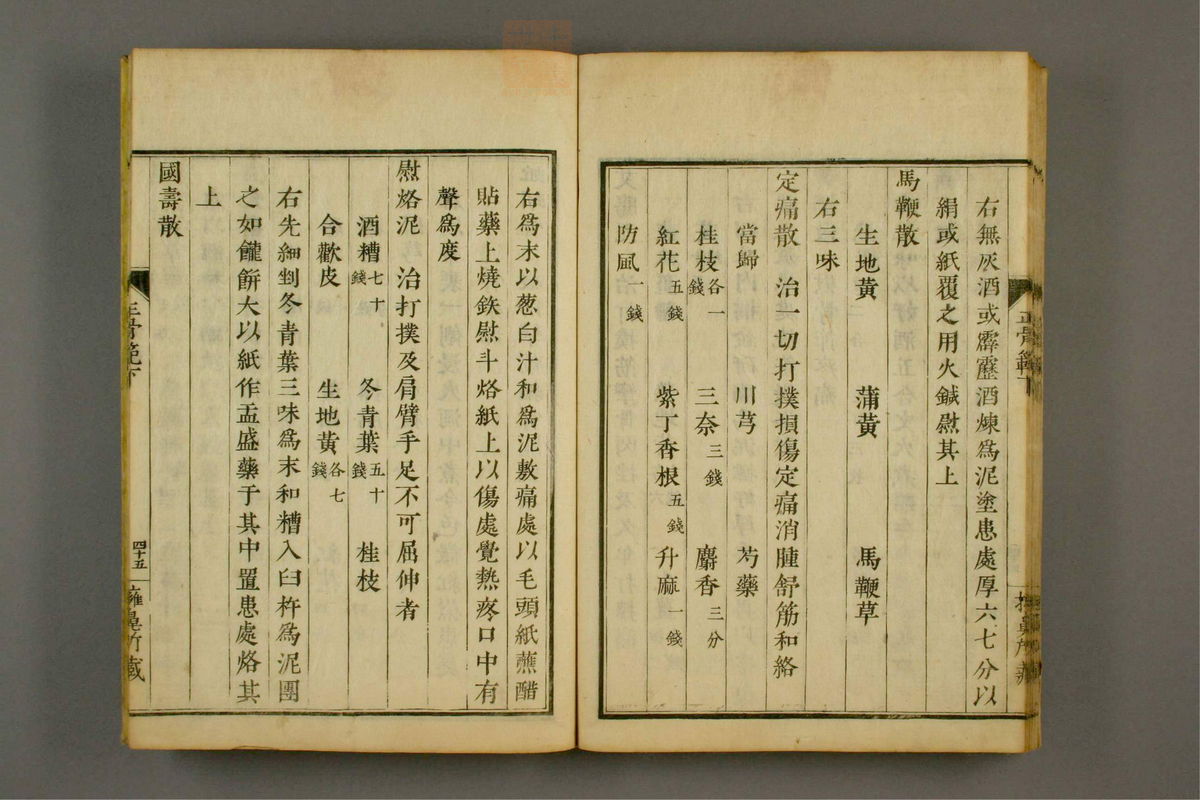 右無灰酒或霹靂酒煉爲泥塗患處厚六七分以
絹或紙覆之用火鍼熨其上
馬鞭散
生地黃 蒲黃 馬鞭草
右三味
定痛散 治一切打撲損傷定痛消腫舒筋和絡
當歸 川芎 芍藥
桂枝各一錢 三奈三錢 麝香三分
紅花五錢 紫丁香根五錢 升麻一錢
防風一錢
右爲末以葱白汁和爲泥敷痛處以毛頭紙蘸醋
貼藥上燒鉄熨斗烙紙上以傷處覺熱疼口中有
聲爲度
熨烙泥 治打撲及肩臂手足不可屈伸者
酒糟七十錢 冬青葉五十錢 桂枝
合歡皮 生地黃各七錢
右先細剉冬青葉三味爲末和糟入臼杵爲泥團
之如饡餅大以紙作盂盛藥于其中置患處烙其
上
國壽散
正骨範下
四十五